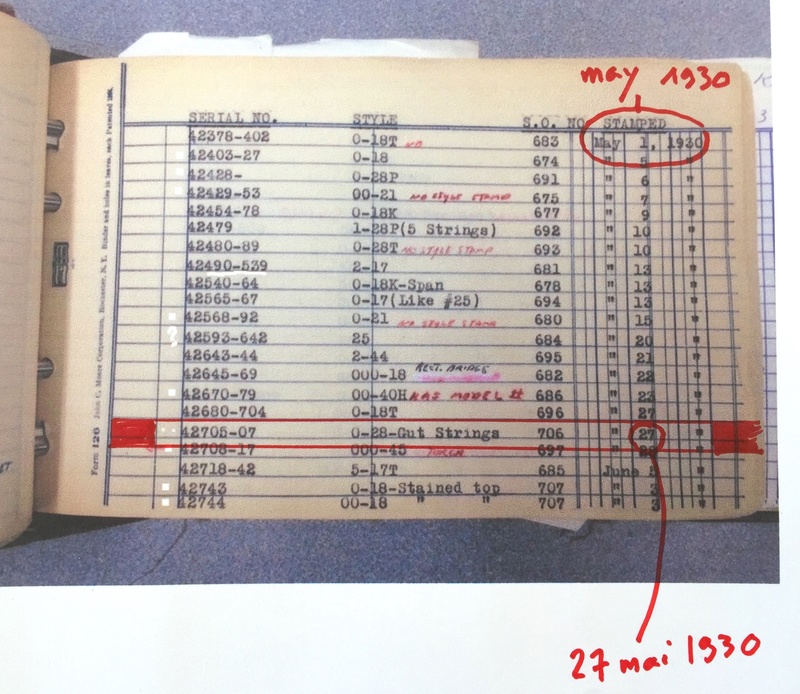 may 1930
SERIAL NO. STYLE S.O. NO. STAMPED
42378-402 0-18T NO 683 May 1, 1930
42403-27 0-18 674 " 5 "
42428- 0-28P 691 " 6 "
42429-53 00-21 NO STYLE STAMP 675 " 7 "
42454-78 0-18K 677 " 9 "
42479 1-28P(5 Strings) 692 " 10 "
42480-89 0-28T NO STYLE STAMP 693 " 10 "
42490-539 2-17 681 " 13 "
42540-64 0-18K-Span 678 " 13 "
42565-67 0-17(Like #25) 694 " 13 "
42568-92 0-21 NO STYLE STAMP 680 " 15 "
? 42593-642 25 684 " 20 "
42643-44 2-44 695 " 21 "
42645-69 000-18 RECT. BRIDGE 682 " 22 "
42670-79 00-40H HAS MODEL # 686 " 23 "
42680-704 0-18T 696 " 27 "
42705-07 0-28-Gut Strings 706 " 27 "
42708-17 000-45 697 " 28 "
42718-42 5-17T 685 June 5 "
42743 0-18-Stained top 707 " 3 "
42744 00-18 " " 707 " 3 "
Form 126 John C. Moore Corporation, Rochester, N. Y. Binder and holes in leaves, each Patented
27 mai 1930